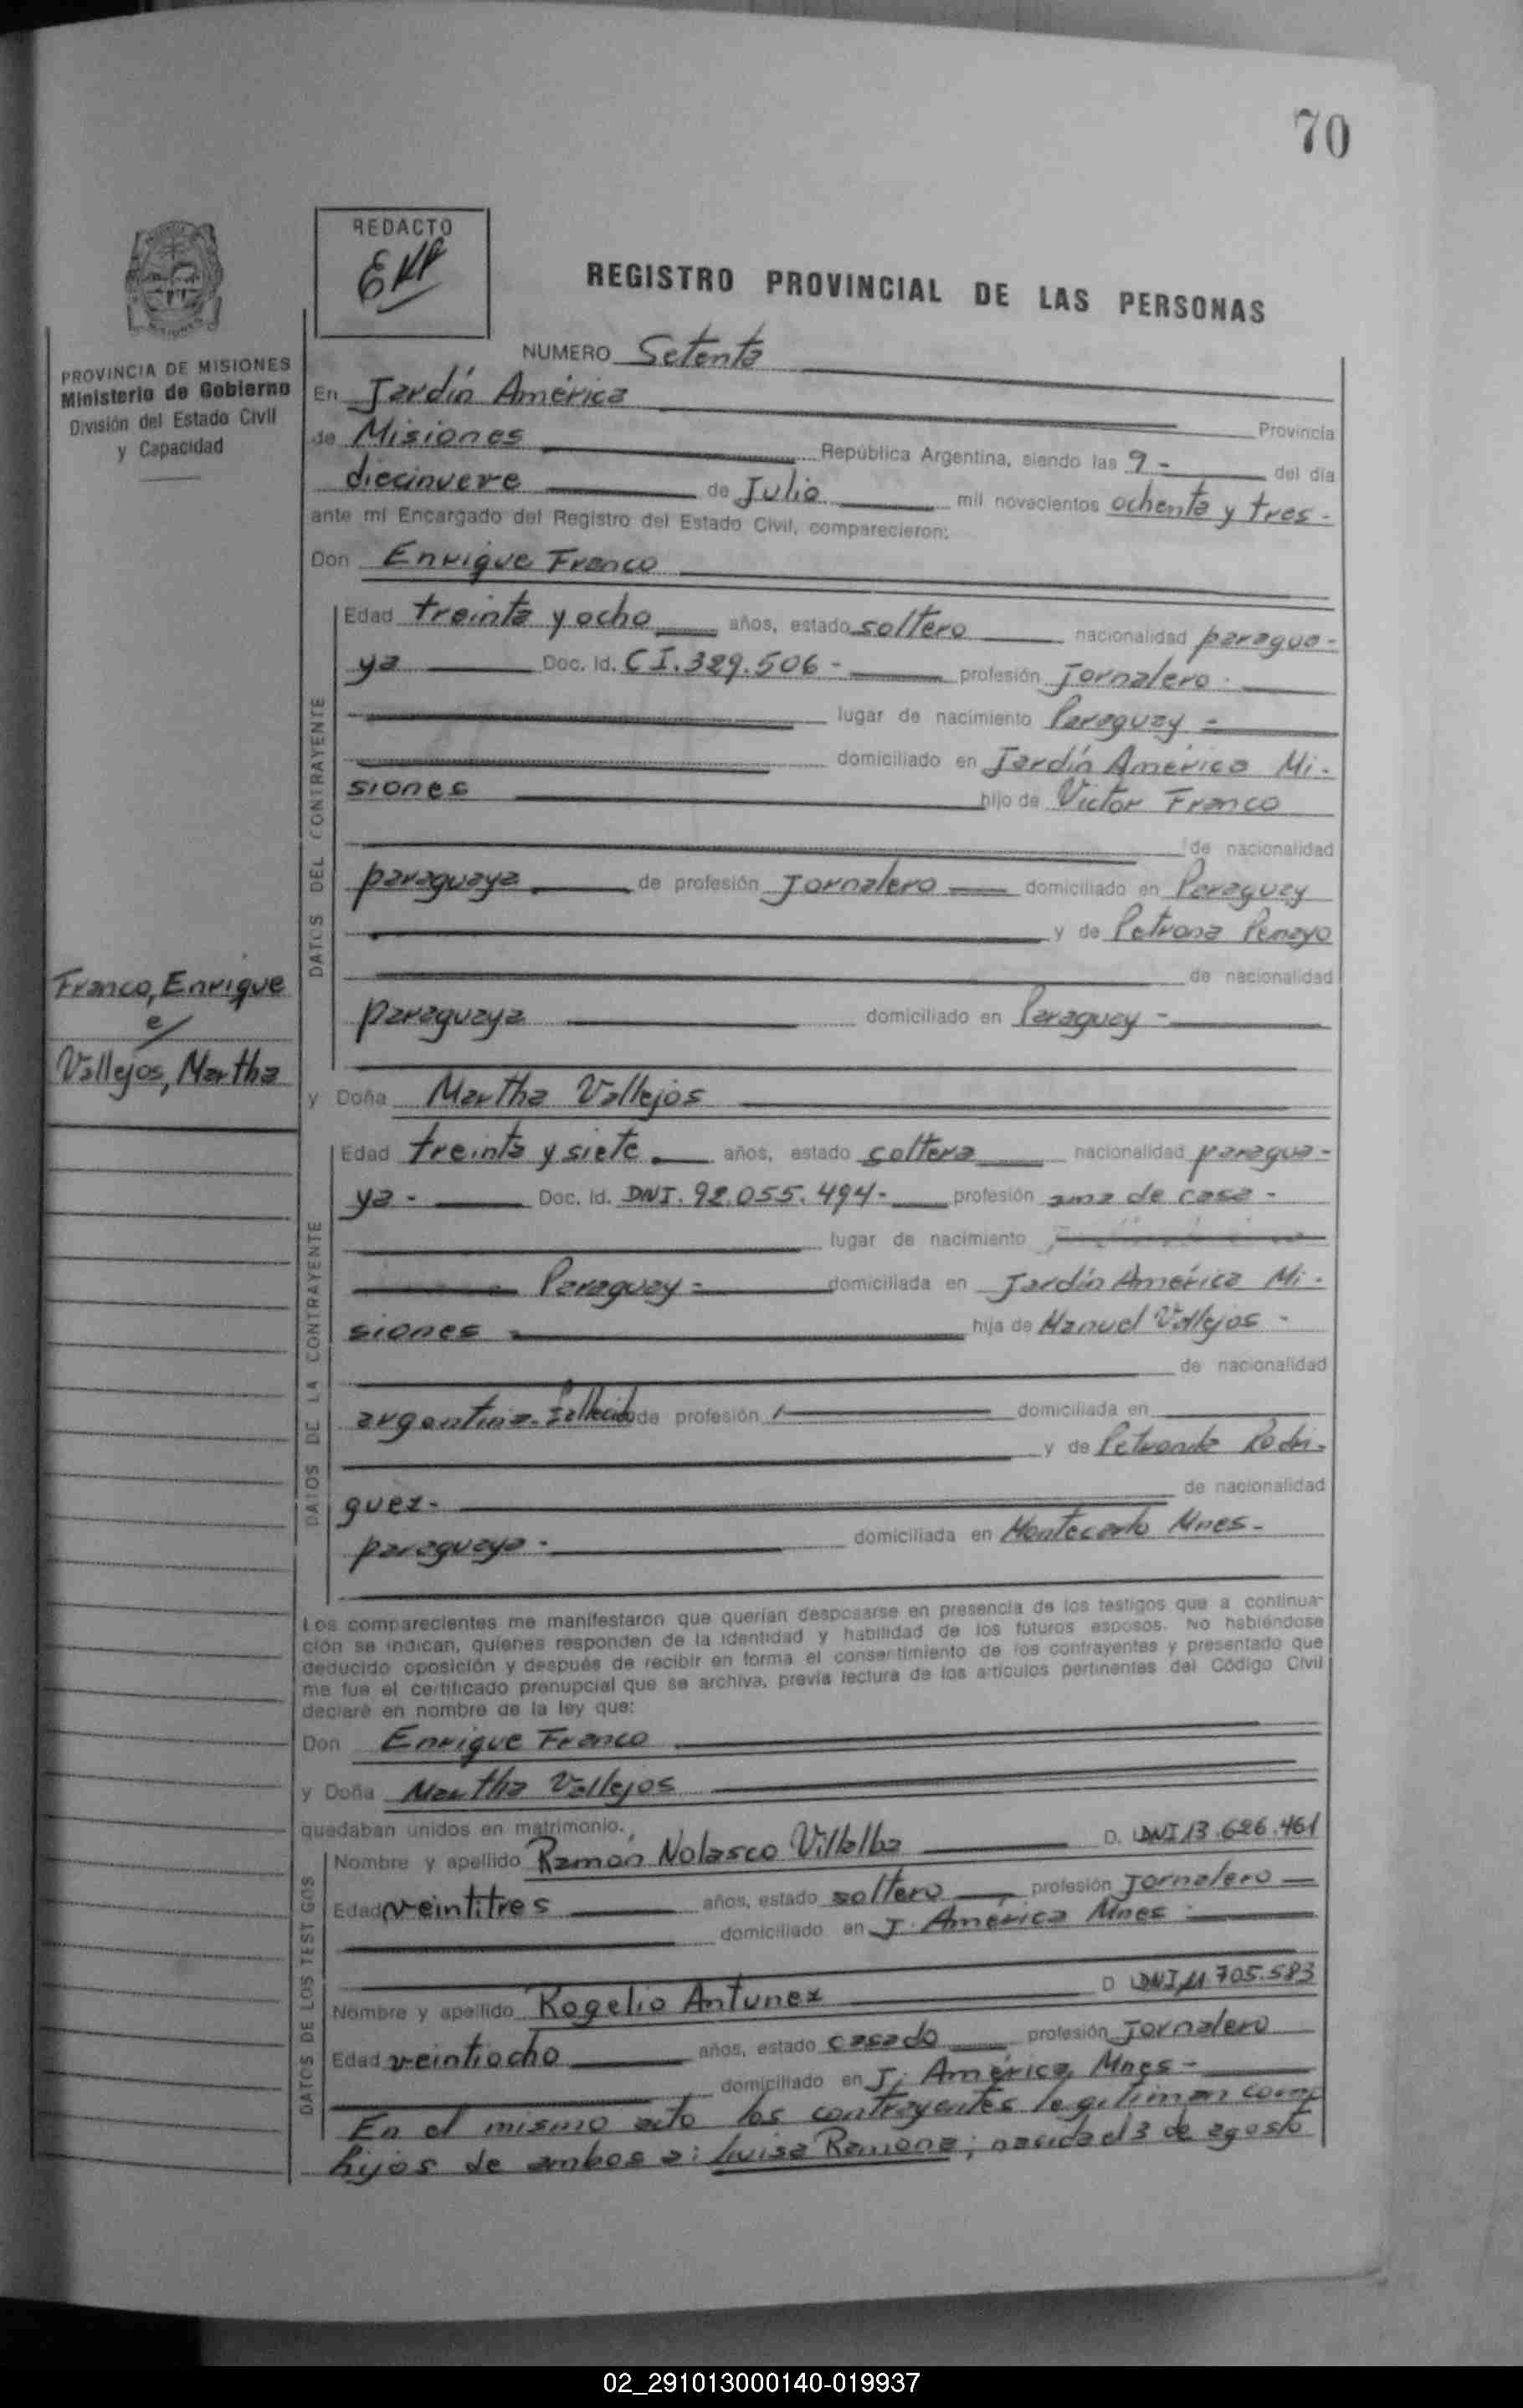 70
REDACTO
REGISTRO PROVINCIAL DE LAS PERSONAS
PROVINCIA DE MISIONES
Ministerio de Gobierno
División del Estado Civil
y Capacidad
NUMERO Setenta
En Jardín América
Provincia
de Misiones República Argentina, siendo las 9 - del día
diecinueve de Julio mil novecientos ochenta y tres -
ante mi Encargado del Registro del Estado Civil, comparecieron:
Don Enrique Franco
DATOS DEL CONTRAYENTE
Edad treinta y ocho años, estado soltero nacionalidad paragua-
ya Doc. Id. CI. 329.506 - profesión Jornalero.
lugar de nacimiento Paraguay -
domiciliado en Jardín América Mi-
siones hijo de Victor Franco
de nacionalidad
paraguaya de profesión Jornalero domiciliado en Paraguay
y de Petrona Penayo
de nacionalidad
paraguaya domiciliado en Paraguay -
Franco, Enrique
c/
Vallejos, Martha
y Doña Martha Vallejos
DATOS DE LA CONTRAYENTE
Edad treinta y siete años, estado soltera nacionalidad paragua-
ya - Doc. Id. DNI. 92.055.494 - profesión ama de casa -
lugar de nacimiento
Paraguay - domiciliada en Jardín América Mi-
siones hija de Manuel Vallejos -
de nacionalidad
argentina - fallecido de profesión domiciliada en
y de Petrona Rodri-
guez -
de nacionalidad
paraguaya - domiciliada en Montecarlo Mnes -
Los comparecientes me manifestaron que querían desposarse en presencia de los testigos que a continua-
ción se indican, quienes responden de la identidad y habilidad de los futuros esposos. No habiéndose
deducido oposición y después de recibir en forma el consentimiento de los contrayentes y presentado que
me fue el certificado prenupcial que se archiva, previa lectura de los artículos pertinentes del Código Civil
declaré en nombre de la ley que:
Don Enrique Franco
y Doña Martha Vallejos
quedaban unidos en matrimonio.
DATOS DE LOS TESTIGOS
Nombre y apellido Ramon Nolasco Villalba D. DNI 13.626.461
Edad veintitres años, estado soltero profesión Jornalero
domiciliado en J. América Mnes
Nombre y apellido Rogelio Antunez D DNI 11.705.583
Edad veintiocho años, estado casado profesión Jornalero
domiciliado en J. América Mnes -
En el mismo acto los contrayentes legitiman como
hijos de ambos a: Luisa Ramona; nacida el 3 de agosto
02_291013000140-019937